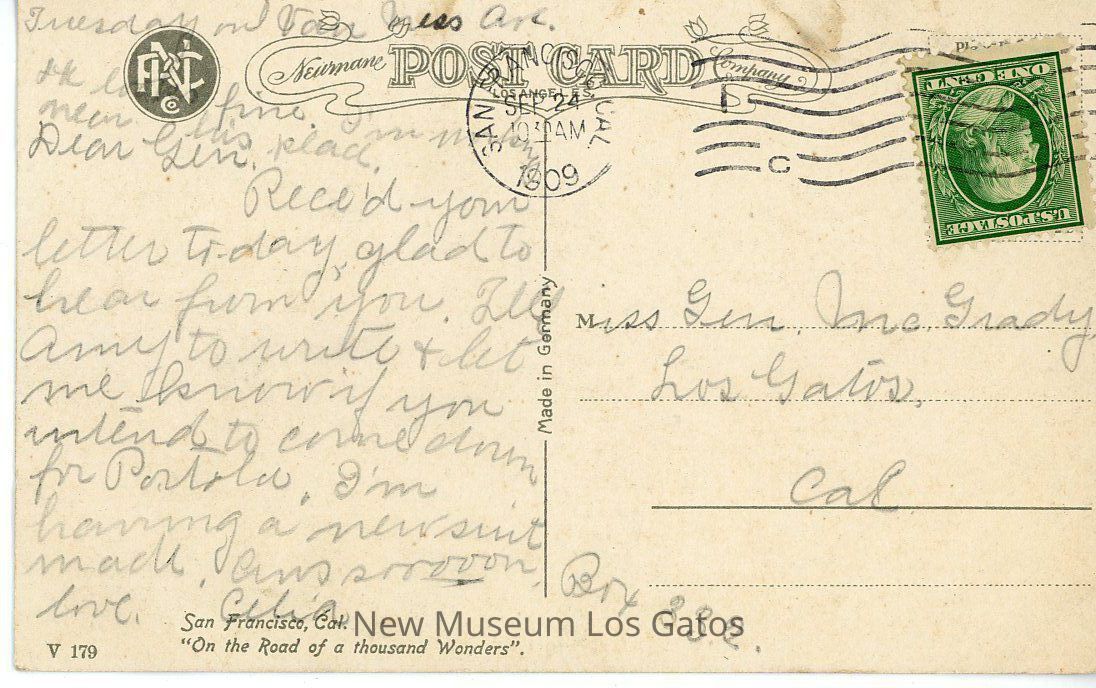 Tuesday on Van Ness Ave.
fine. I'm
near his, glad.
Newmane POST CARD Company
LOS ANGELES
SAN FRANCISCO, CAL
SEP 24
1909
C
ONE CENT
U.S. POSTAGE
Dear Gen.
Rece'd your
letter to-day, glad to
hear from you. Tell
Amy to write & let
me know if you
intend to come down
for Portola. I'm
having a new suit
made. Ans sooooon.
love. Celia
Made in Germany
Miss Gen. Mc. Grady
Los Gatos,
Cal
Box 332.
San Francisco, Cal.
V 179 "On the Road of a thousand Wonders".
New Museum Los Gatos